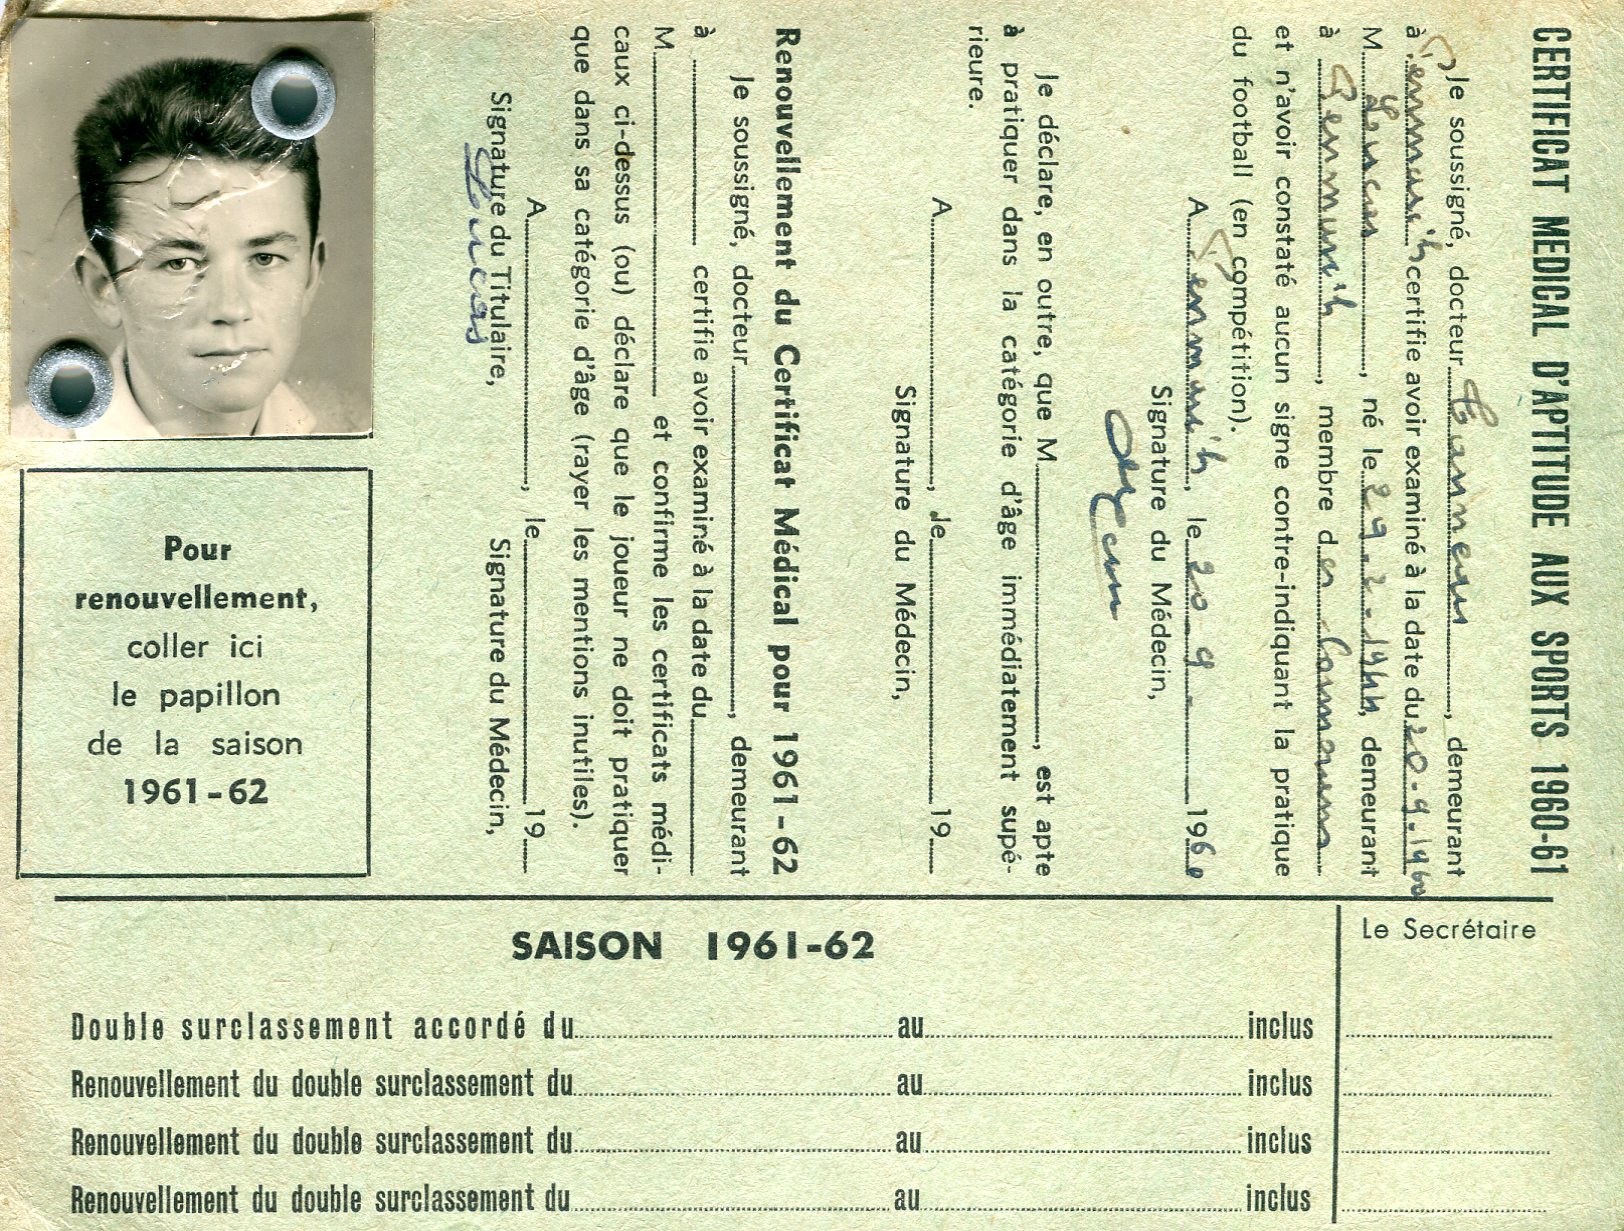 CERTIFICAT MEDICAL D'APTITUDE AUX SPORTS 1960-61
Je soussigné, docteur, demeurant
à Penmarc'h certifie avoir examiné à la date du 20.9.1960
M. Lucas, né le 29.2.1944, demeurant
à Penmarc'h, membre des
et n'avoir constaté aucun signe contre-indiquant la pratique
du football (en compétition).
A Penmarc'h, le 20 9 1960
Signature du Médecin,
Je déclare, en outre, que M, est apte
à pratiquer dans la catégorie d'âge immédiatement supé-
rieure.
A, le 19
Signature du Médecin,
Renouvellement du Certificat Médical pour 1961-62
Je soussigné, docteur, demeurant
à certifie avoir examiné à la date du
M. et confirme les certificats médi-
caux ci-dessus (ou) déclare que le joueur ne doit pratiquer
que dans sa catégorie d'âge (rayer les mentions inutiles).
A, le 19
Signature du Titulaire, Signature du Médecin,
Lucas
Pour
renouvellement,
coller ici
le papillon
de la saison
1961-62
SAISON 1961-62
Le Secrétaire
Double surclassement accordé du au inclus
Renouvellement du double surclassement du au inclus
Renouvellement du double surclassement du au inclus
Renouvellement du double surclassement du au inclus